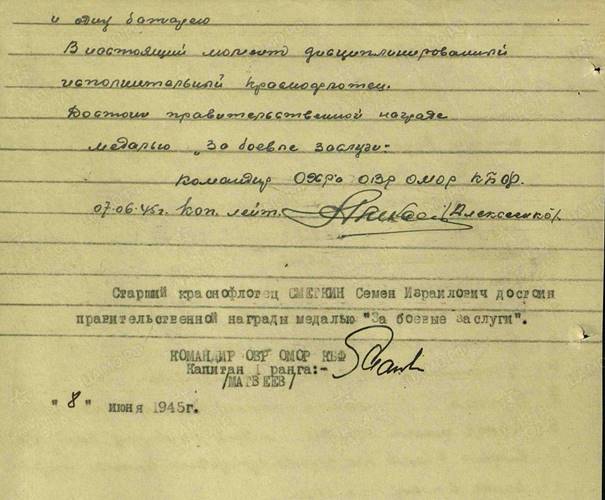 и одну батарею
В настоящий момент дисциплинированный
исполнительный краснофлотец.
Достоин правительственной награде
медалью "За боевые заслуги-
Командир ОХРа ОВР ОМОР КБФ.
07.06.45г. кап. лейт. (Алексенко).
Старший краснофлотец СМЕТКИН Семен Израилович достоин
правительственной награды медалью "За боевые заслуги".
КОМАНДИР ОВР ОМОР КБФ
Капитан 1 ранга:-
/МАТВЕЕВ/
" 8 " июня 1945г.